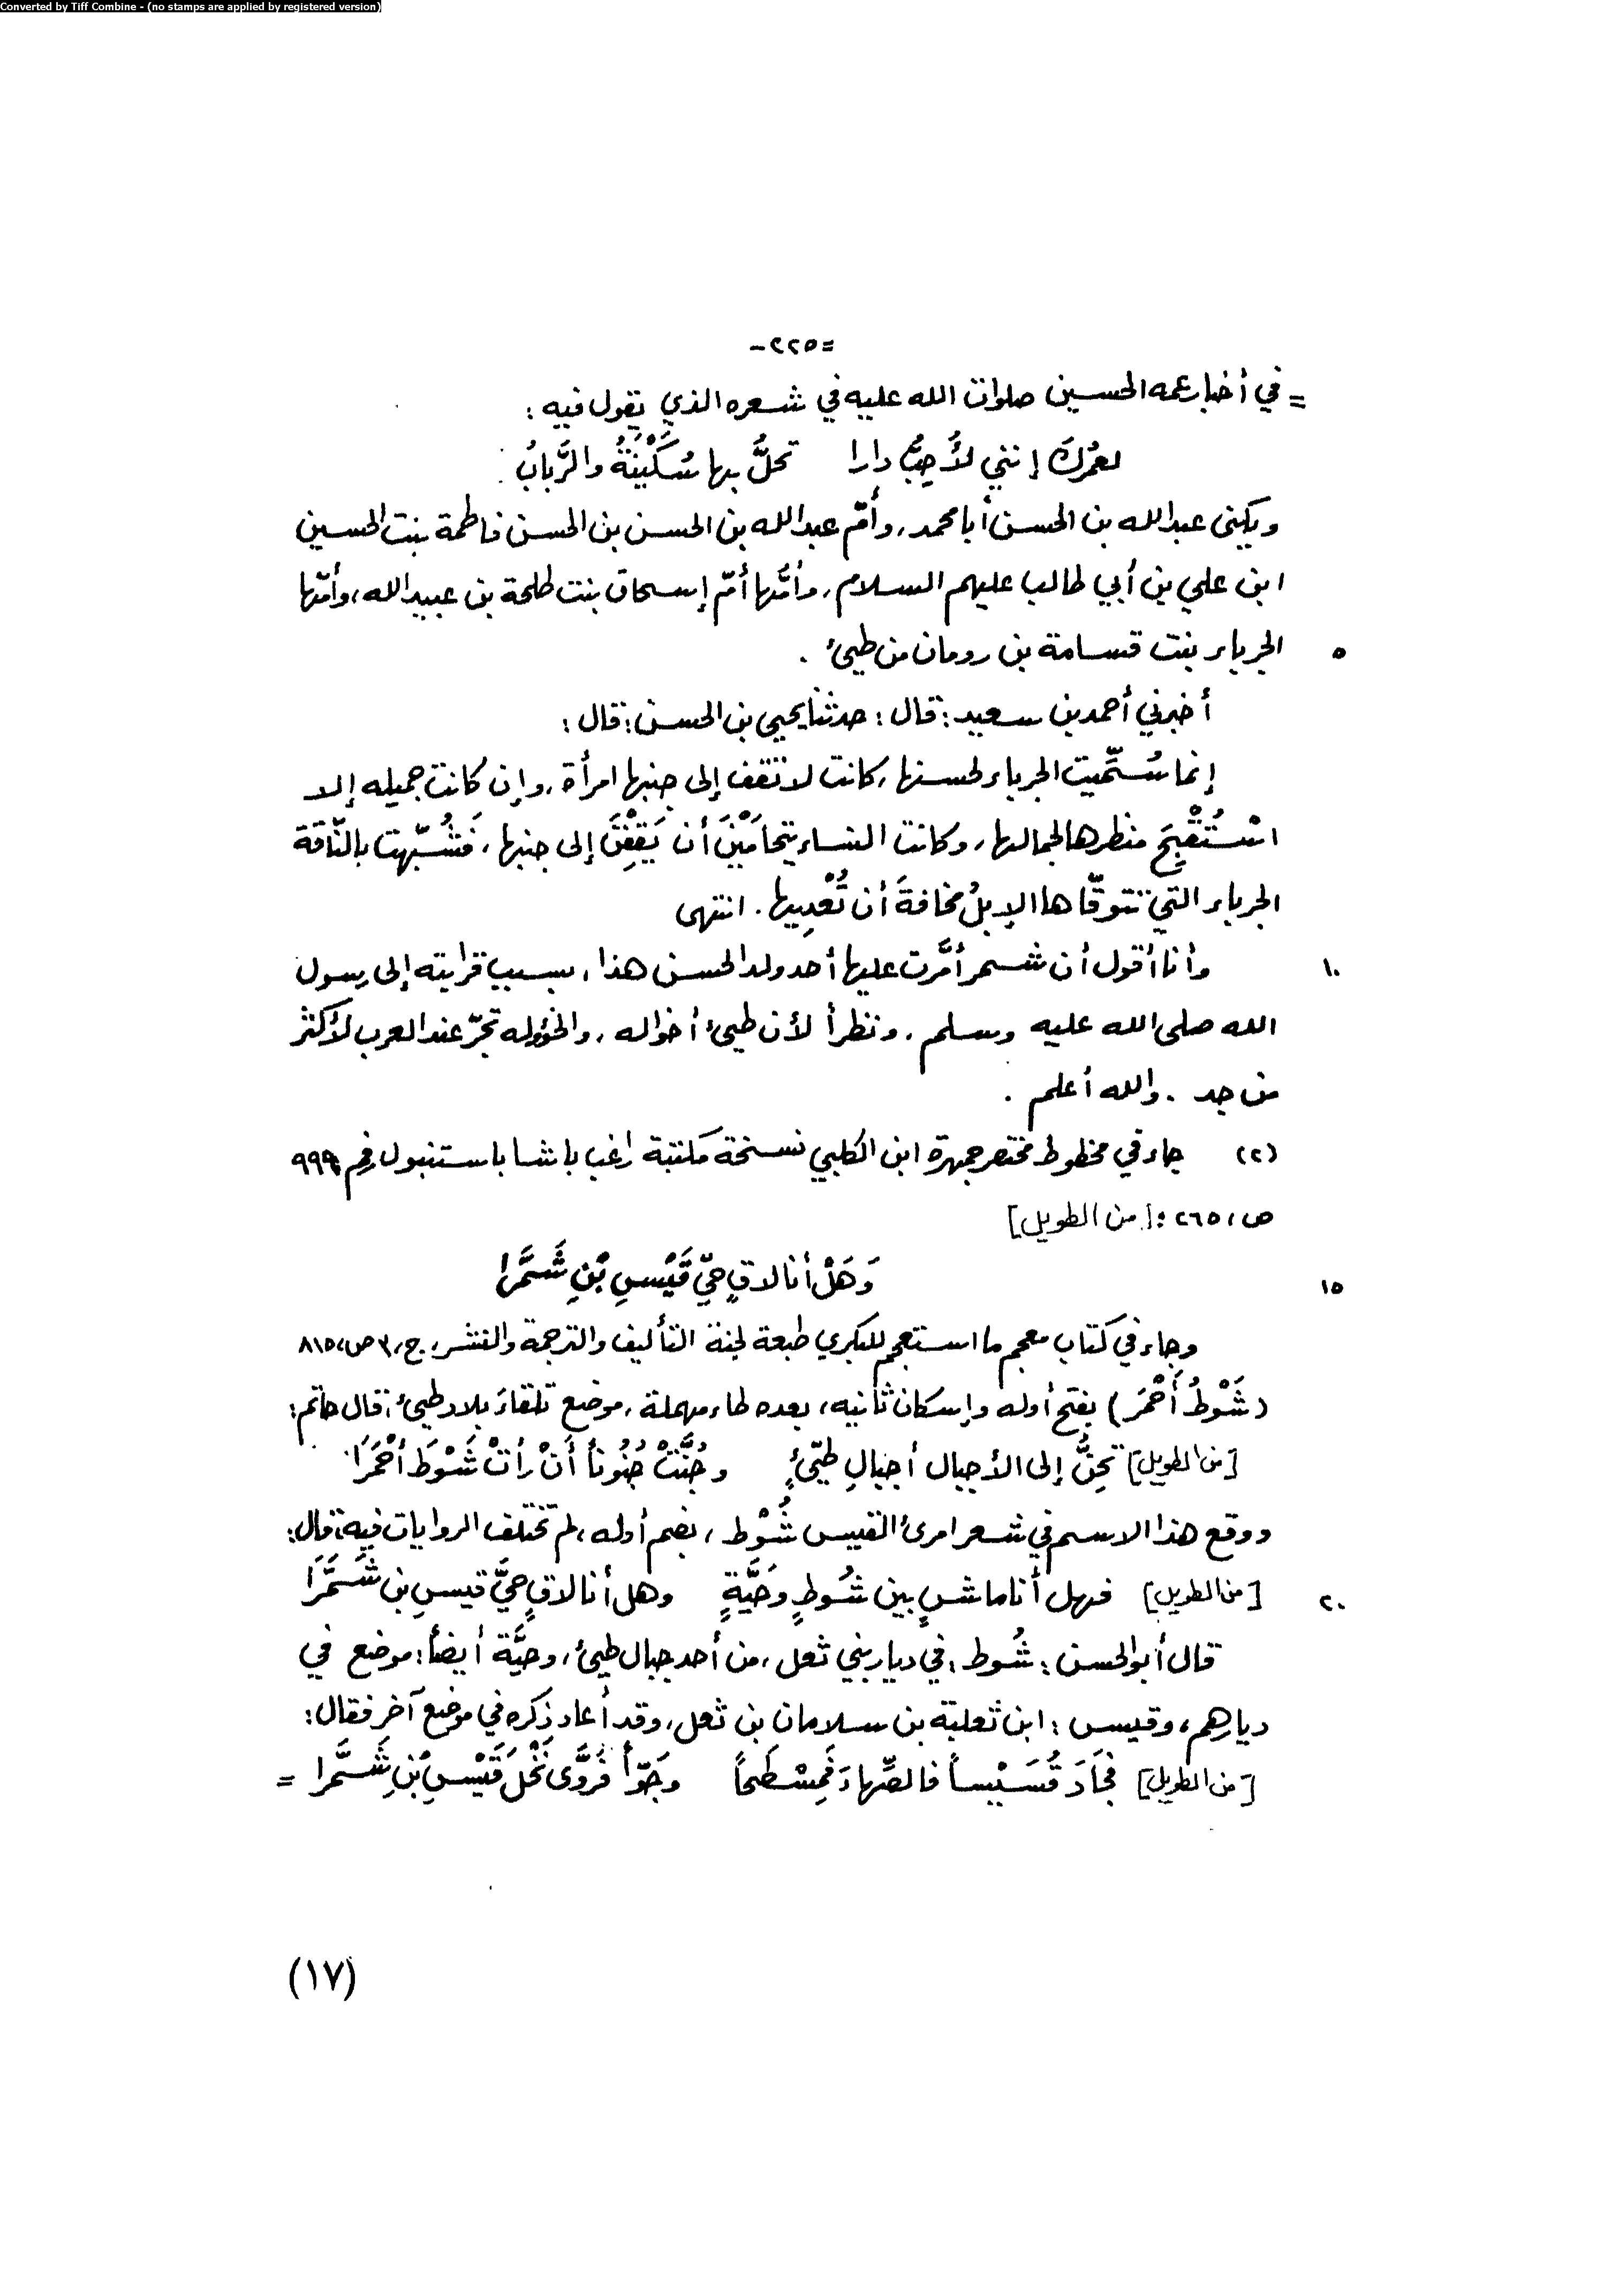 Converted by Tiff Combine - (no stamps are applied by registered version)
=٢٢٥-
= في أخبار عمه الحسين صلوات الله عليه في شعره الذي يقول فيه :
لعمرُكَ إنني لأُحِبُّ دارا تحلُّ بها سُكَيْنَةُ والرَّبابُ
ويكنى عبدالله بن الحسن أبا محمد، وأمّ عبدالله بن الحسن بن الحسن فاطمة بنت الحسين
ابن علي بن أبي طالب عليهم السلام، وأمُّها أمّ إسحاق بنت طلحة بن عبيدالله، وأمّها
٥ الجرباء بنت قسامة بن رومان من طيئ .
أخبرني أحمد بن سعيد: قال: حدثنا يحيى بن الحسن: قال:
إنما سُمّيت الجرباء لحسنها، كانت لا تقف إلى جنبها امرأة، وإن كانت جميله إلا
اسْتُقْبِحَ منظرها لجمالها، وكانت النساء يتحامَيْنَ أن يَقِفْنَ إلى جنبها، فشُبّهت بالنّاقة
الجرباء التي تتوقّاها الإبلُ مخافةَ أن تُعْدِيها. انتهى
١٠ وأنا أقول أن شمر أمَّرت عليها أحد ولد الحسن هذا، بسبب قرابته إلى رسول
الله صلى الله عليه وسلم، ونظراً لأن طيئ أخواله، والخؤوله تجرّ عند العرب لأكثر
من جد . والله أعلم .
(٢) جاء في مخطوط مختصر جمهرة ابن الكلبي نسخة مكتبة راغب باشا باستنبول رقم ٩٩٩
ص، ٢٦٥ : [من الطويل]
١٥ وَهَلْ أنا لاقٍ حيّ قَيْسِ بْنِ شَمَّرا
وجاء في كتاب معجم ما استعجم للبكري طبعة لجنة التأليف والترجمة والنشر، ج، ٣ ص، ٨١٥
(شَوْطُ أَحْمَر) بفتح أوله وإسكان ثانيه، بعده طاء مهملة، موضع تلقاءَ بلاد طيئ: قال حاتم:
[من الطويل] تحِنُّ إلى الأجبال أجبالِ طيّئٍ وجُنَّتْ جُنُوناً أَنْ رأتْ شَوْطَ أحْمَرَا
ووقع هذا الاسم في شعر امرئ القيس شُوْط، بضم أوله، لم تختلف الروايات فيه: قال:
٢٠ [من الطويل] فهل أنا ماشٍ بين شُوطٍ وَحَيَّةٍ وهل أنا لاقٍ حيَّ قيسِ بن شَمَّرَا
قال أبو الحسن: شُوط: في ديار بني ثعل، من أحد جبال طيئ، وحيَّة أيضاً: موضع في
ديارهم، وقيس: ابن ثعلبة بن سلامان بن ثعل، وقد أعاد ذكره في موضع آخر فقال:
[من الطويل] فجَادَ قُسَيْساً فالصِّهاءَ فَمِسْطَحاً وجَوّاً فَرَوَّى نَخْلَ قَيْسِ بْنِ شَمَّرا =
(١٧)